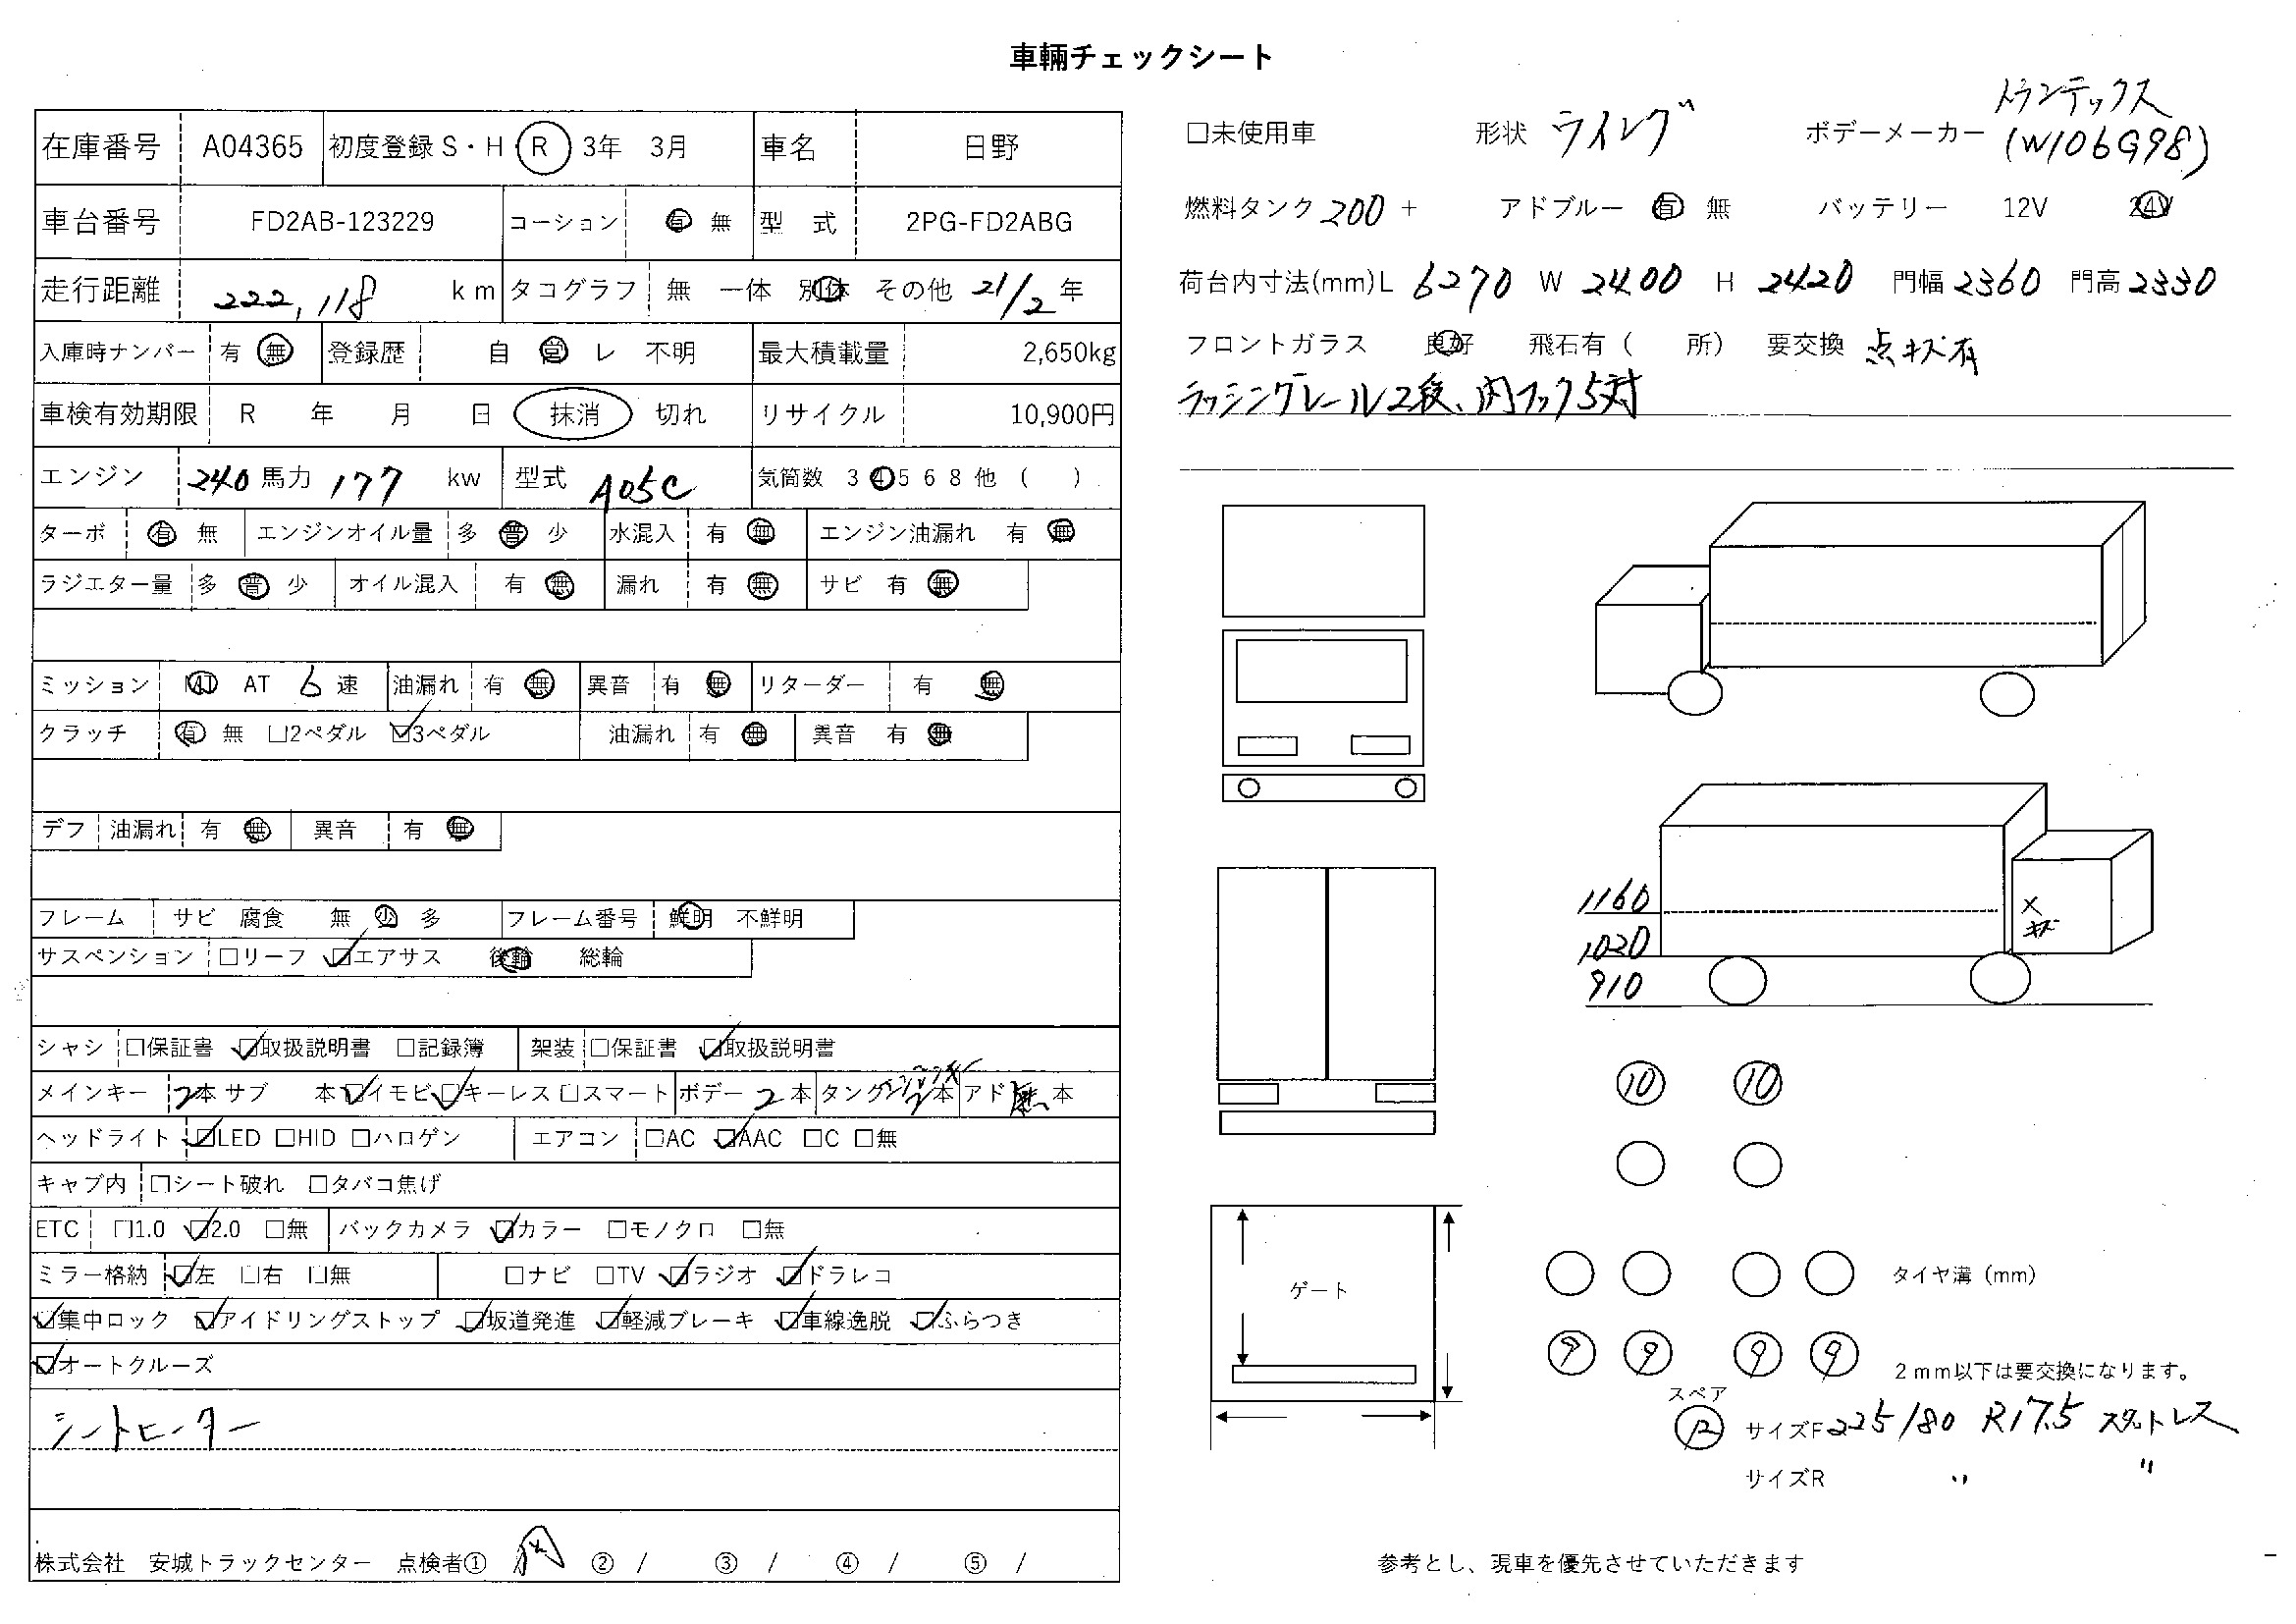 車輌チェックシート
在庫番号 A04365 初度登録 S・H・R 3年 3月 車名 日野
車台番号 FD2AB-123229 コーション 有 無 型 式 2PG-FD2ABG
走行距離 222,118 km タコグラフ 無 一体 別体 その他 21/2 年
入庫時ナンバー 有 無 登録歴 自 営 レ 不明 最大積載量 2,650kg
車検有効期限 R 年 月 日 抹消 切れ リサイクル 10,900円
エンジン 240 馬力 177 kw 型式 A05C 気筒数 3 4 5 6 8 他 ( )
ターボ 有 無 エンジンオイル量 多 普 少 水混入 有 無 エンジン油漏れ 有 無
ラジエター量 多 普 少 オイル混入 有 無 漏れ 有 無 サビ 有 無
ミッション MT AT 6 速 油漏れ 有 無 異音 有 無 リターダー 有 無
クラッチ 有 無 □2ペダル ☑3ペダル 油漏れ 有 無 異音 有 無
デフ 油漏れ 有 無 異音 有 無
フレーム サビ 腐食 無 少 多 フレーム番号 鮮明 不鮮明
サスペンション □リーフ ☑エアサス 後輪 総輪
シャシ □保証書 ☑取扱説明書 □記録簿 架装 □保証書 ☑取扱説明書
メインキー 2本 サブ 本 ☑イモビ ☑キーレス □スマート ボデー 2 本 タンク 2本 アド 無 本
ヘッドライト ☑LED □HID □ハロゲン エアコン □AC ☑AAC □C □無
キャブ内 □シート破れ □タバコ焦げ
ETC □1.0 ☑2.0 □無 バックカメラ ☑カラー □モノクロ □無
ミラー格納 ☑左 □右 □無 □ナビ □TV ☑ラジオ ☑ドラレコ
☑集中ロック ☑アイドリングストップ ☑坂道発進 ☑軽減ブレーキ ☑車線逸脱 ☑ふらつき
☑オートクルーズ
シートヒーター
株式会社 安城トラックセンター 点検者① ② / ③ / ④ / ⑤ /
□未使用車 形状 ウイング ボデーメーカー トランテックス
(W106G98)
燃料タンク 200 + アドブルー 有 無 バッテリー 12V 24V
荷台内寸法(mm)L 6270 W 2400 H 2420 門幅 2360 門高 2330
フロントガラス 良好 飛石有 ( 所) 要交換 点キズ有
ラッシングレール2段、内フック5対
1160
1020
910
× キズ
10 10
ゲート
タイヤ溝 (mm)
9 9 9 9
2mm以下は要交換になります。
スペア
12 サイズF 225/80 R17.5 スタットレス
サイズR 〃 〃
参考とし、現車を優先させていただきます